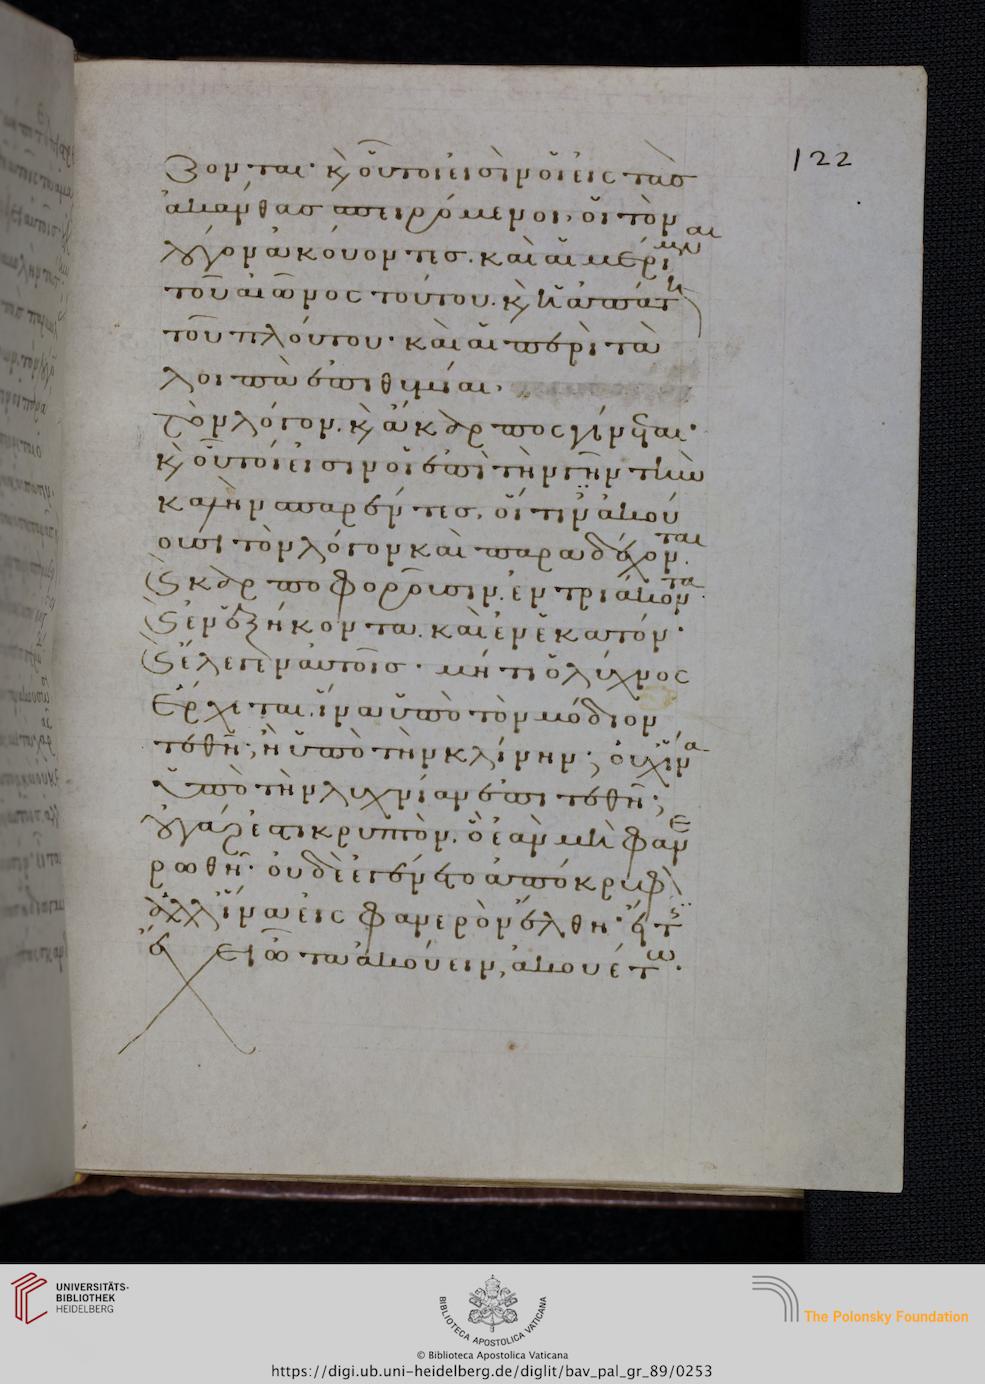 122
ζονται· κ(αὶ) οὗτοι εἰσὶν οἱ εἰς τὰσ
ἀκάνθασ σπειρόμενοι, οἱ τὸν
λόγον ἀκούοντεσ. καὶ αἱ μέριμναι
τοῦ αἰῶνος τούτου. κ(αὶ) ἡ ἀπάτη
τοῦ πλούτου· καὶ αἱ περὶ τὰ
λοιπὰ ἐπιθυμίαι,
τὸν λόγον. κ(αὶ) ἄκαρπος γίνεται·
κ(αὶ) οὗτοι εἰσιν οἱ ἐπὶ τὴν γῆν τὴν
καλὴν σπαρέντεσ, οἵτιν ἀκού
ουσι τὸν λόγον καὶ παραδέχονται.
κ(αὶ) καρποφοροῦσιν. ἐν τριάκοντα.
κ(αὶ) ἐν ἑξήκοντα. καὶ ἐν ἑκατόν·
κ(αὶ) ἔλεγεν αὐτοῖσ· μήτι ὁ λύχνος
ἔρχεται. ἵνα ὑπὸ τὸν μόδιον
τεθῆ; ἢ ὑπὸ τὴν κλίνην; οὐχ ἵνα
ὑπὸ τὴν λυχνίαν ἐπιτεθῆ;
οὐ γάρ ἐστι κρυπτὸν. ὃ ἐὰν μὴ φανε
ρωθῆ· οὐδὲ ἐγένετο ἀπόκρυφ
ἀλλ ἵνα εἰς φανερὸν ἔλθη· εἴ τις
ἔχει ὦτα ἀκούειν, ἀκουέτω.
UNIVERSITÄTS-
BIBLIOTHEK
HEIDELBERG
BIBLIOTECA APOSTOLICA VATICANA
The Polonsky Foundation
© Biblioteca Apostolica Vaticana
https://digi.ub.uni-heidelberg.de/diglit/bav_pal_gr_89/0253